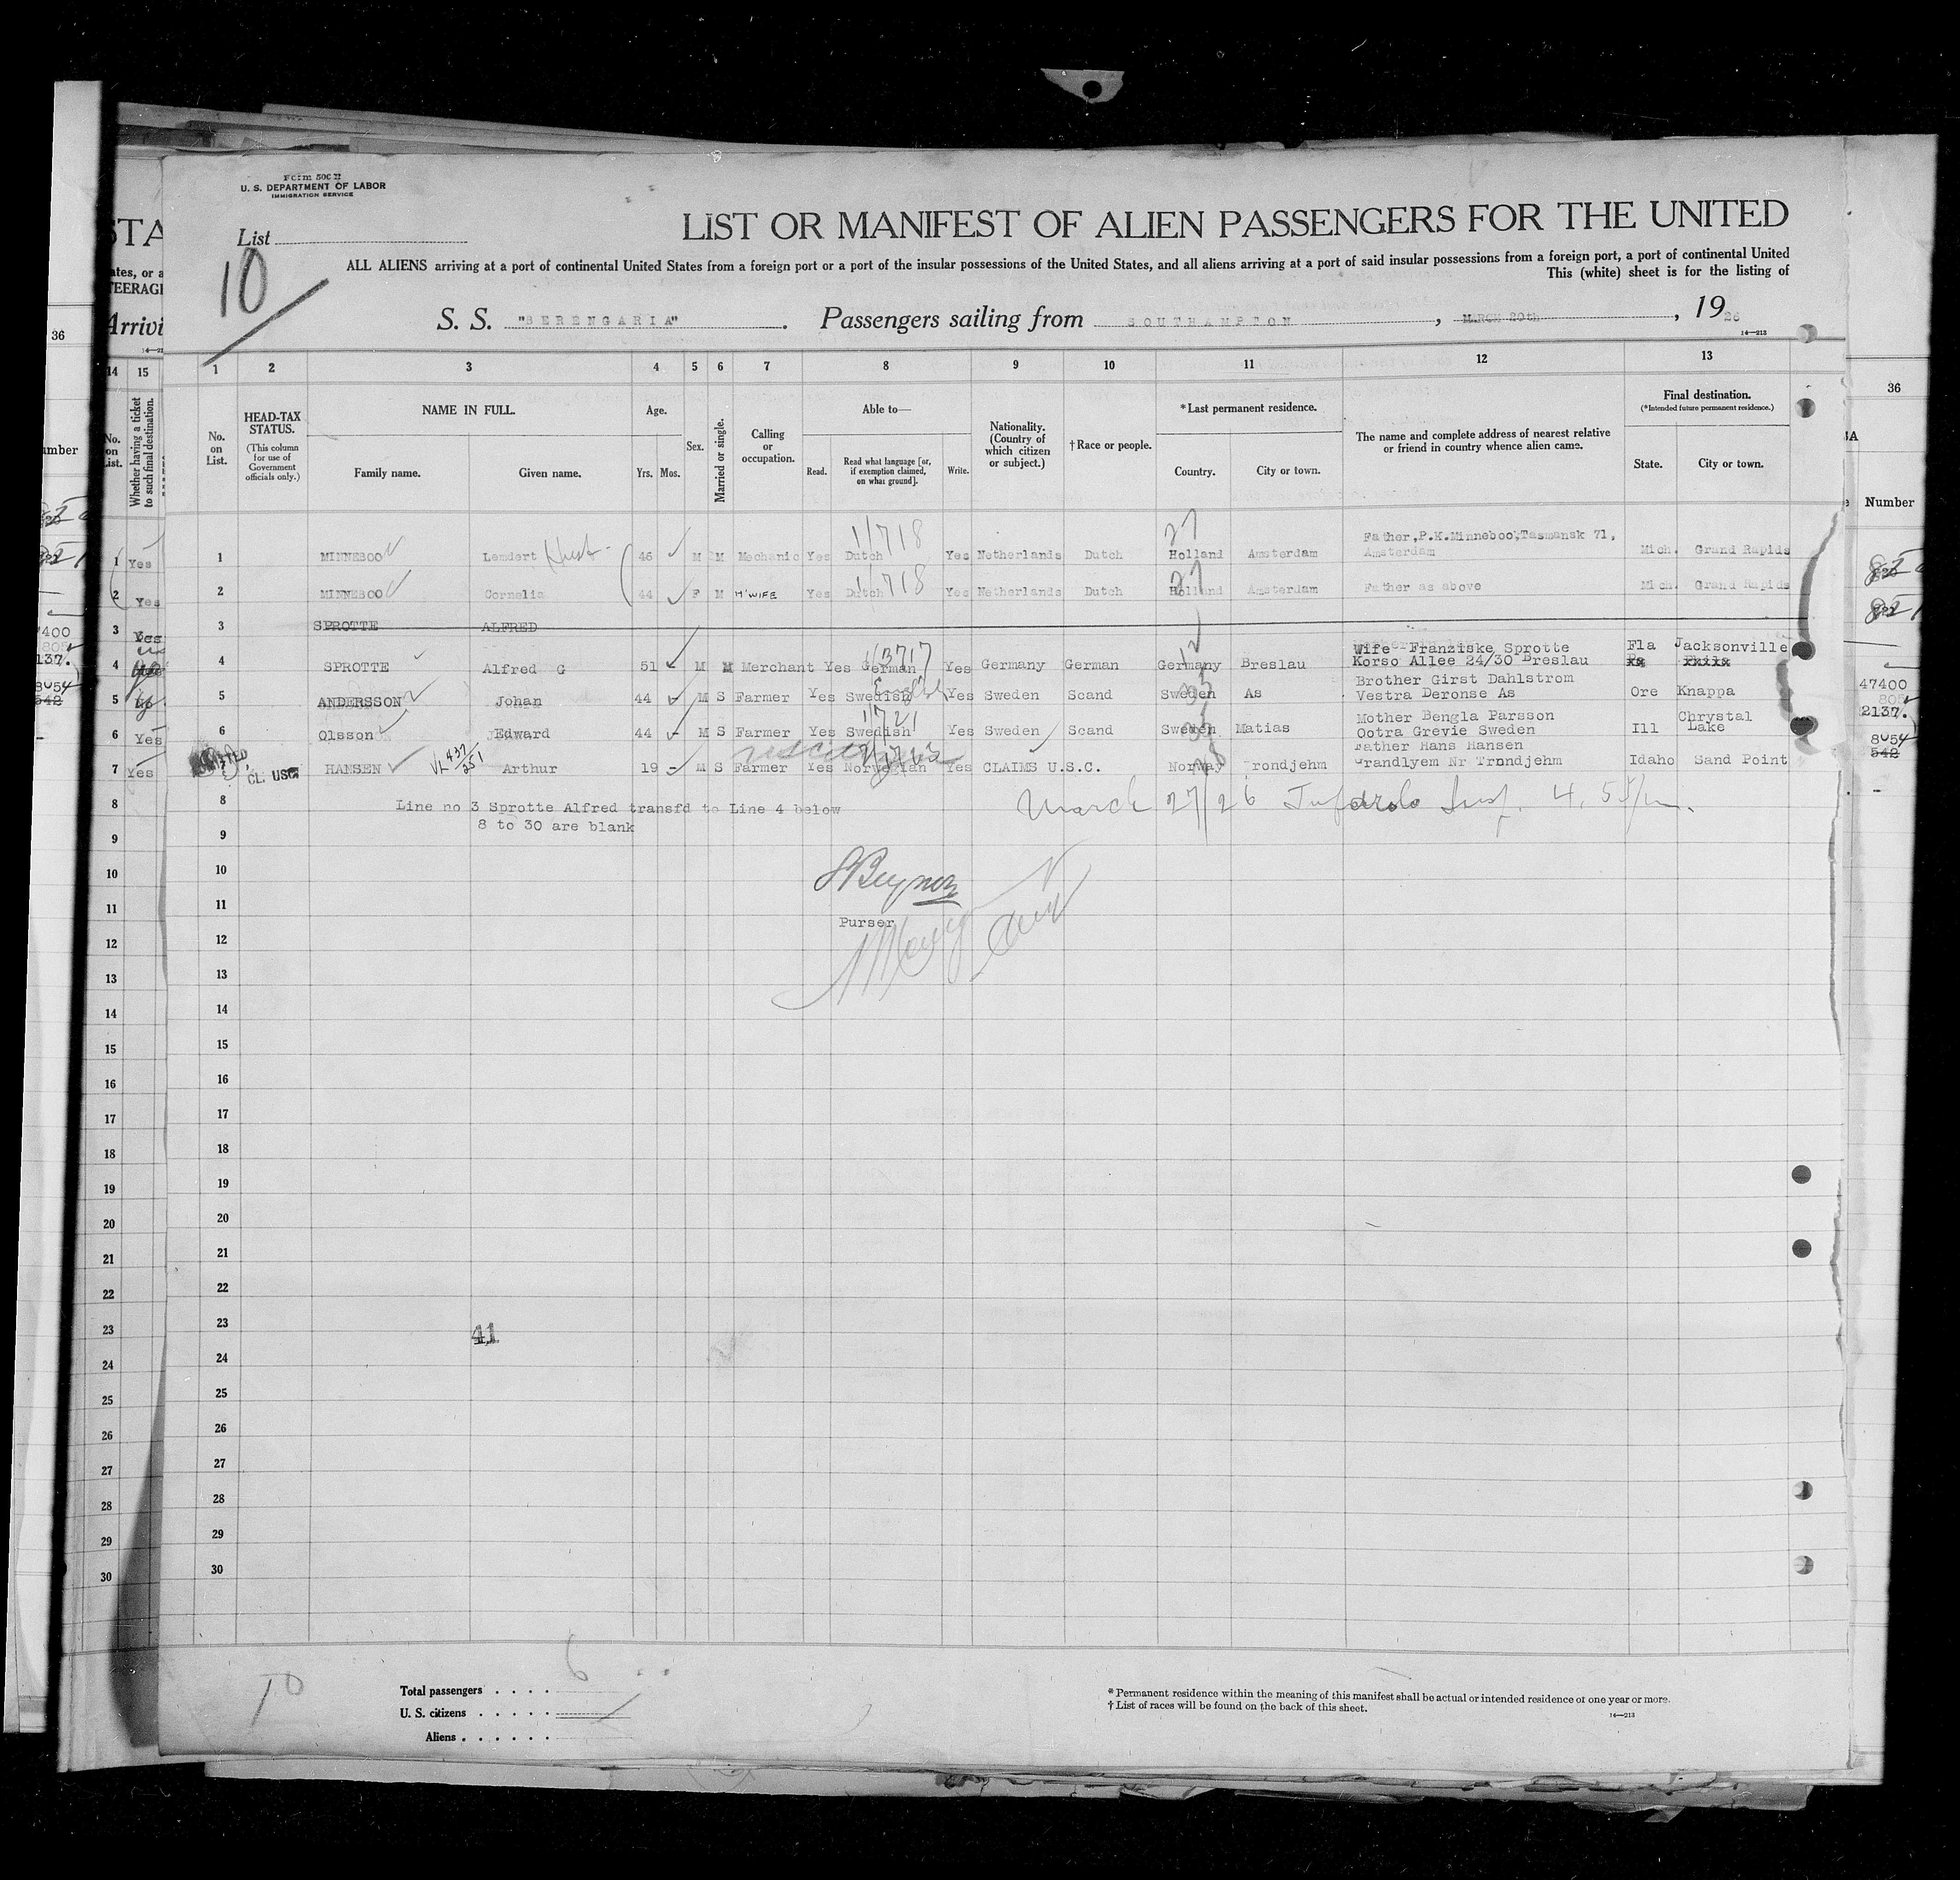 Form 500 B
U. S. DEPARTMENT OF LABOR
IMMIGRATION SERVICE
List
10
LIST OR MANIFEST OF ALIEN PASSENGERS FOR THE UNITED
ALL ALIENS arriving at a port of continental United States from a foreign port or a port of the insular possessions of the United States, and all aliens arriving at a port of said insular possessions from a foreign port, a port of continental United
This (white) sheet is for the listing of
S. S. "BERENGARIA". Passengers sailing from SOUTHAMPTON, MARCH 20th, 1926
14—213
1 2 3 4 5 6 7 8 9 10 11 12 13
No. on List.
HEAD-TAX STATUS. (This column for use of Government officials only.)
NAME IN FULL.
Family name. Given name.
Age.
Yrs. Mos.
Sex.
Married or single.
Calling or occupation.
Able to—
Read. Read what language [or, if exemption claimed, on what ground]. Write.
Nationality. (Country of which citizen or subject.)
†Race or people.
*Last permanent residence.
Country. City or town.
The name and complete address of nearest relative or friend in country whence alien came.
Final destination.
(*Intended future permanent residence.)
State. City or town.
1 MINNEBOO Lendert 46 M M Mechanic Yes Dutch Yes Netherlands Dutch Holland Amsterdam Father,P.K.Minneboo,Tasmansk 71, Amsterdam Mich. Grand Rapids
2 MINNEBOO Cornelia 44 F M H'WIFE Yes Dutch Yes Netherlands Dutch Holland Amsterdam Father as above Mich. Grand Rapids
3 SPROTTE ALFRED
4 SPROTTE Alfred G 51 M M Merchant Yes German Yes Germany German Germany Breslau Wife Franziske Sprotte Korso Allee 24/30 Breslau Fla Jacksonville
5 ANDERSSON Johan 44 M S Farmer Yes Swedish Yes Sweden Scand Sweden As Brother Girst Dahlstrom Vestra Deronse As Ore Knappa
6 Olsson Edward 44 M S Farmer Yes Swedish Yes Sweden Scand Sweden Matias Mother Bengla Parsson Ootra Grevie Sweden Ill Chrystal Lake
7 CL. USC HANSEN Arthur 19 M S Farmer Yes Norwegian Yes CLAIMS U.S.C. Norway Trondjehm Father Hans Hansen Grandlyem Nr Trondjehm Idaho Sand Point
8 Line no 3 Sprotte Alfred transfd to Line 4 below
8 to 30 are blank
March 27/26
9
10
11
Purser
12
13
14
15
16
17
18
19
20
21
22
23
41
24
25
26
27
28
29
30
10
6
Total passengers
U. S. citizens
Aliens
* Permanent residence within the meaning of this manifest shall be actual or intended residence of one year or more.
† List of races will be found on the back of this sheet.
14—213